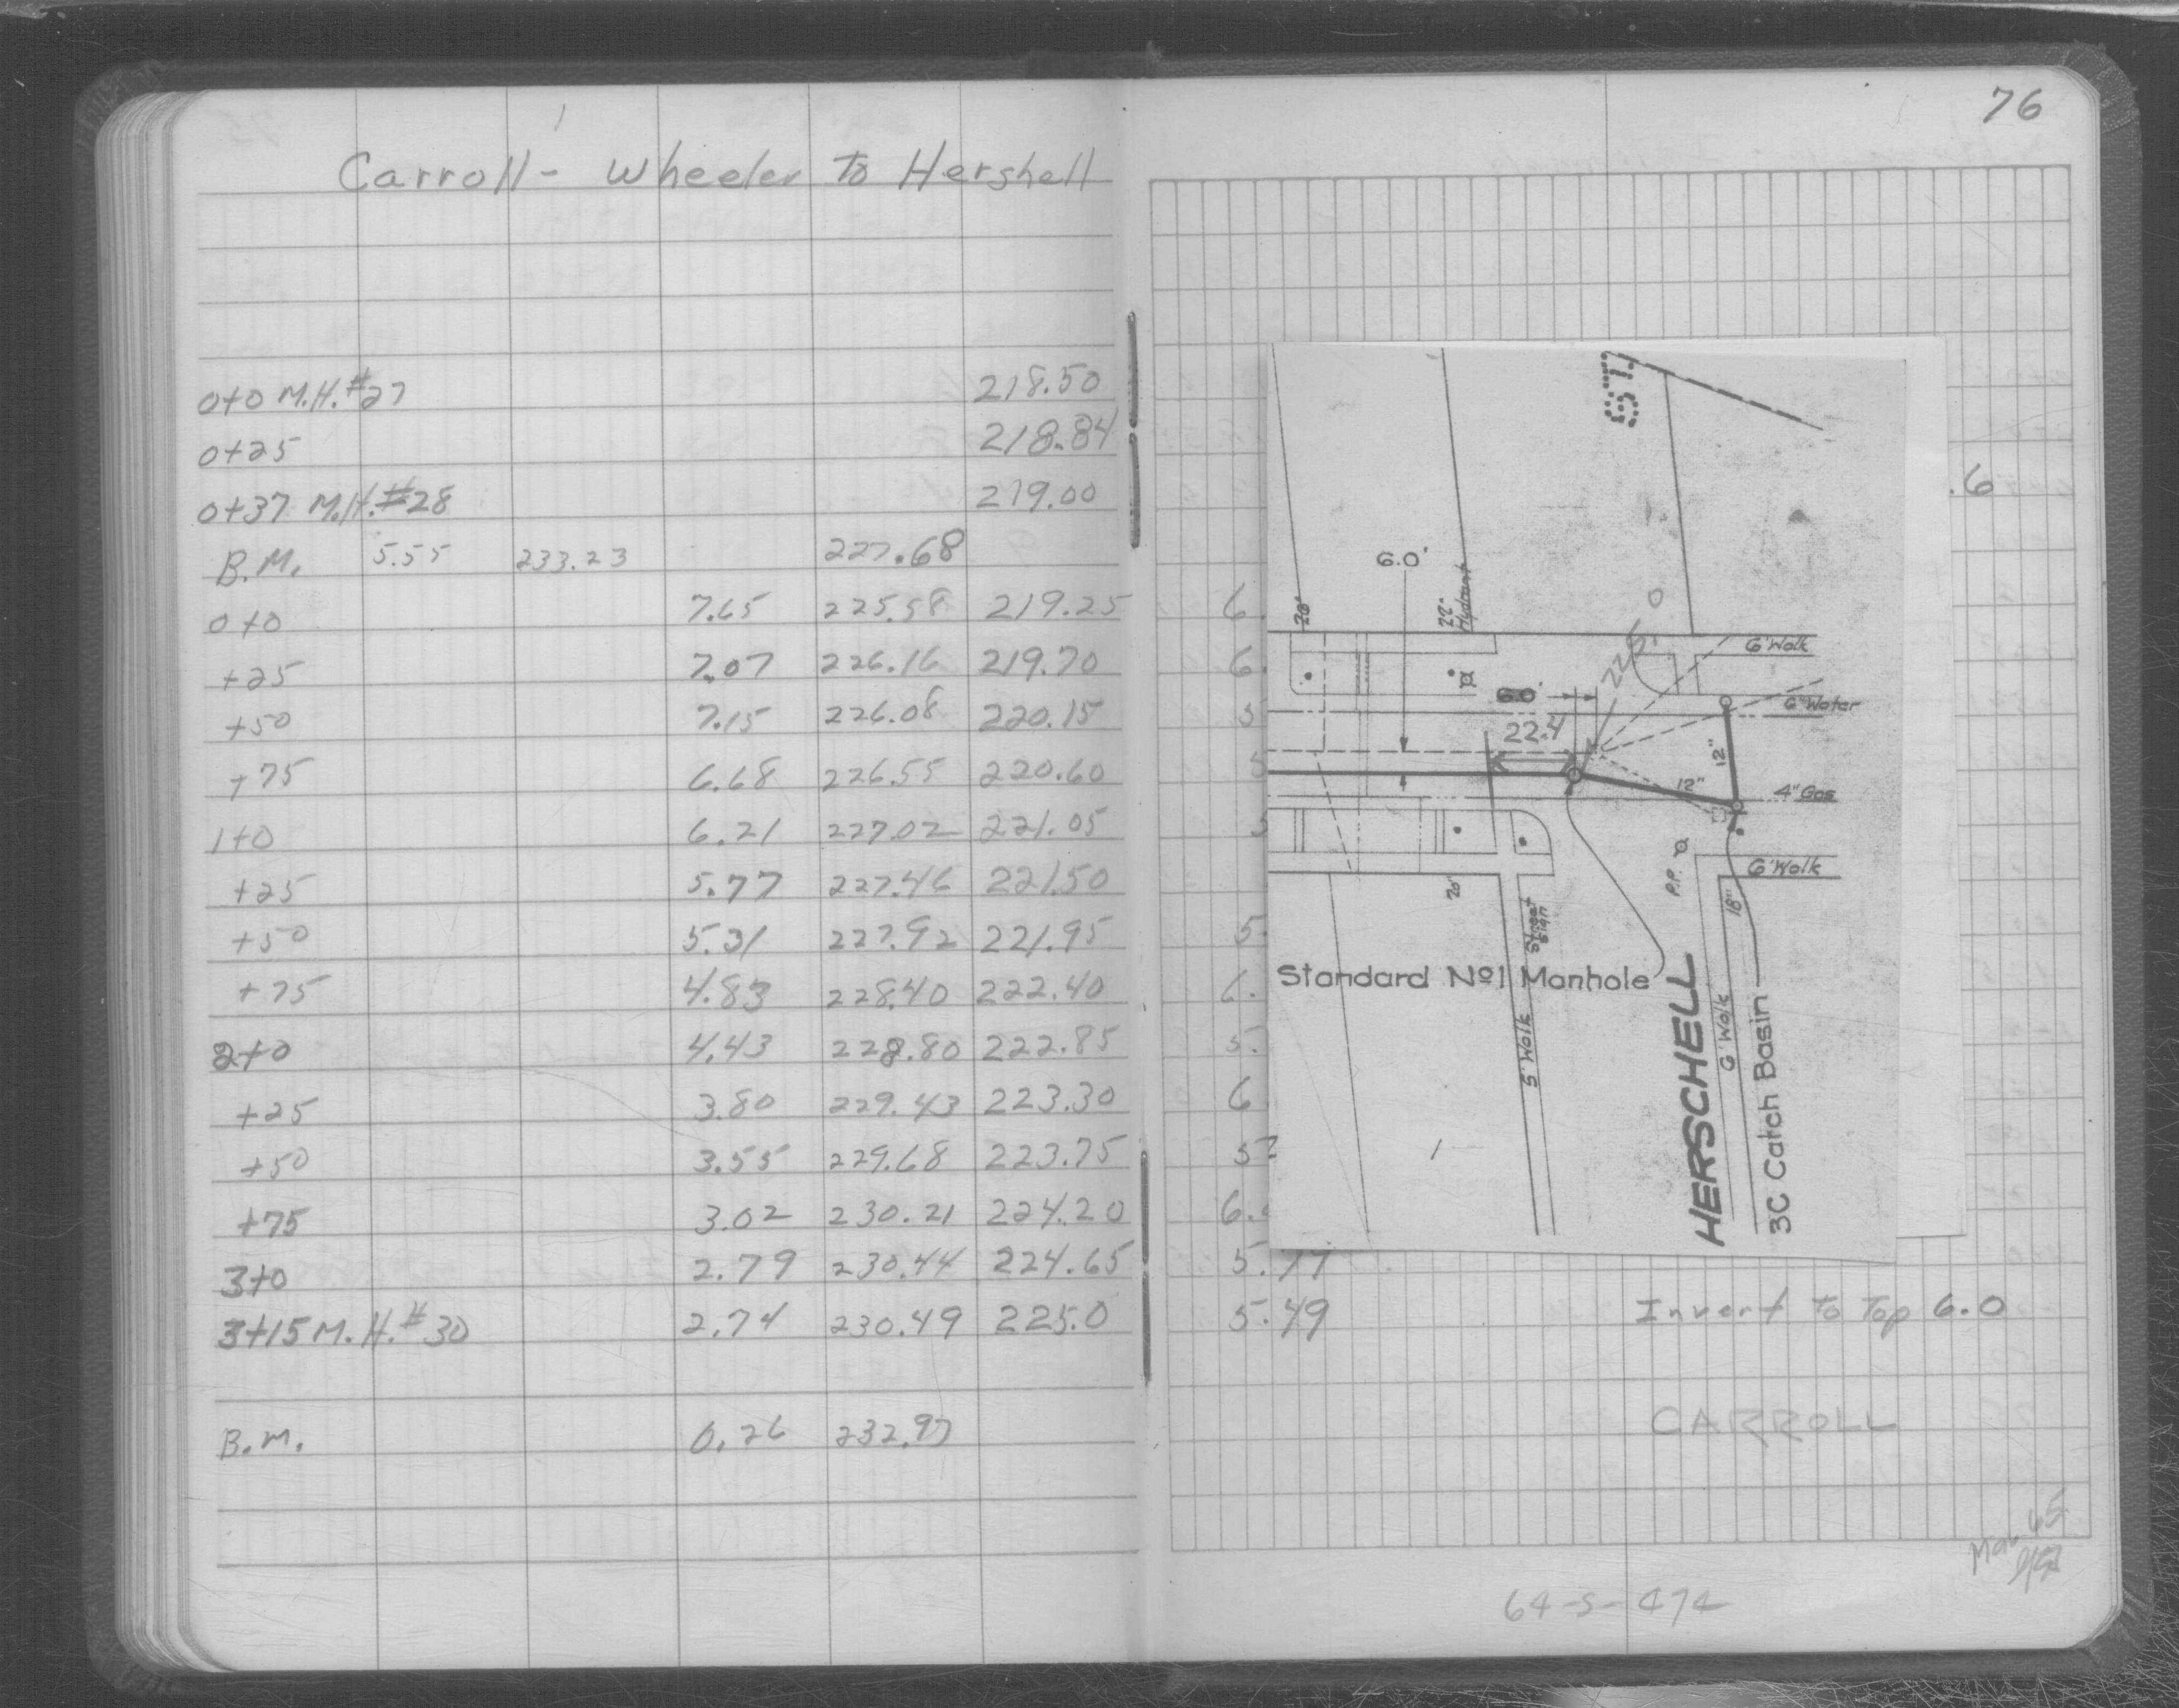 76
Carroll - Wheeler to Hershell
0+0 M.H.#27 218.50
0+25 218.84
0+37 M.H.#28 219.00
.6
B.M. 5.55 233.23 227.68
0+0 7.65 225.58 219.25 6.
+25 7.07 226.16 219.70 6.
+50 7.15 226.08 220.15 5
+75 6.68 226.55 220.60 5
1+0 6.21 227.02 221.05 5
+25 5.77 227.46 221.50
+50 5.31 227.92 221.95 5.
+75 4.83 228.40 222.40 6.
2+0 4.43 228.80 222.85 5.
+25 3.80 229.43 223.30 6
+50 3.55 229.68 223.75 5
+75 3.02 230.21 224.20 6.
3+0 2.79 230.44 224.65 5.79
3+15 M.H.#30 2.74 230.49 225.0 5.49
Invert to Top 6.0
B.M. 0.26 232.97
CARROLL
Mar 65
64-S-474
ST.
6.0'
20'
22"
Hydrant
225.0
6'Walk
6.0'
6"Water
22.4
12"
12"
4"Gas
6'Walk
P.P.
20'
Street
Sign
18"
Standard No1 Manhole
5'Walk
6'Walk
HERSCHELL
3C Catch Basin